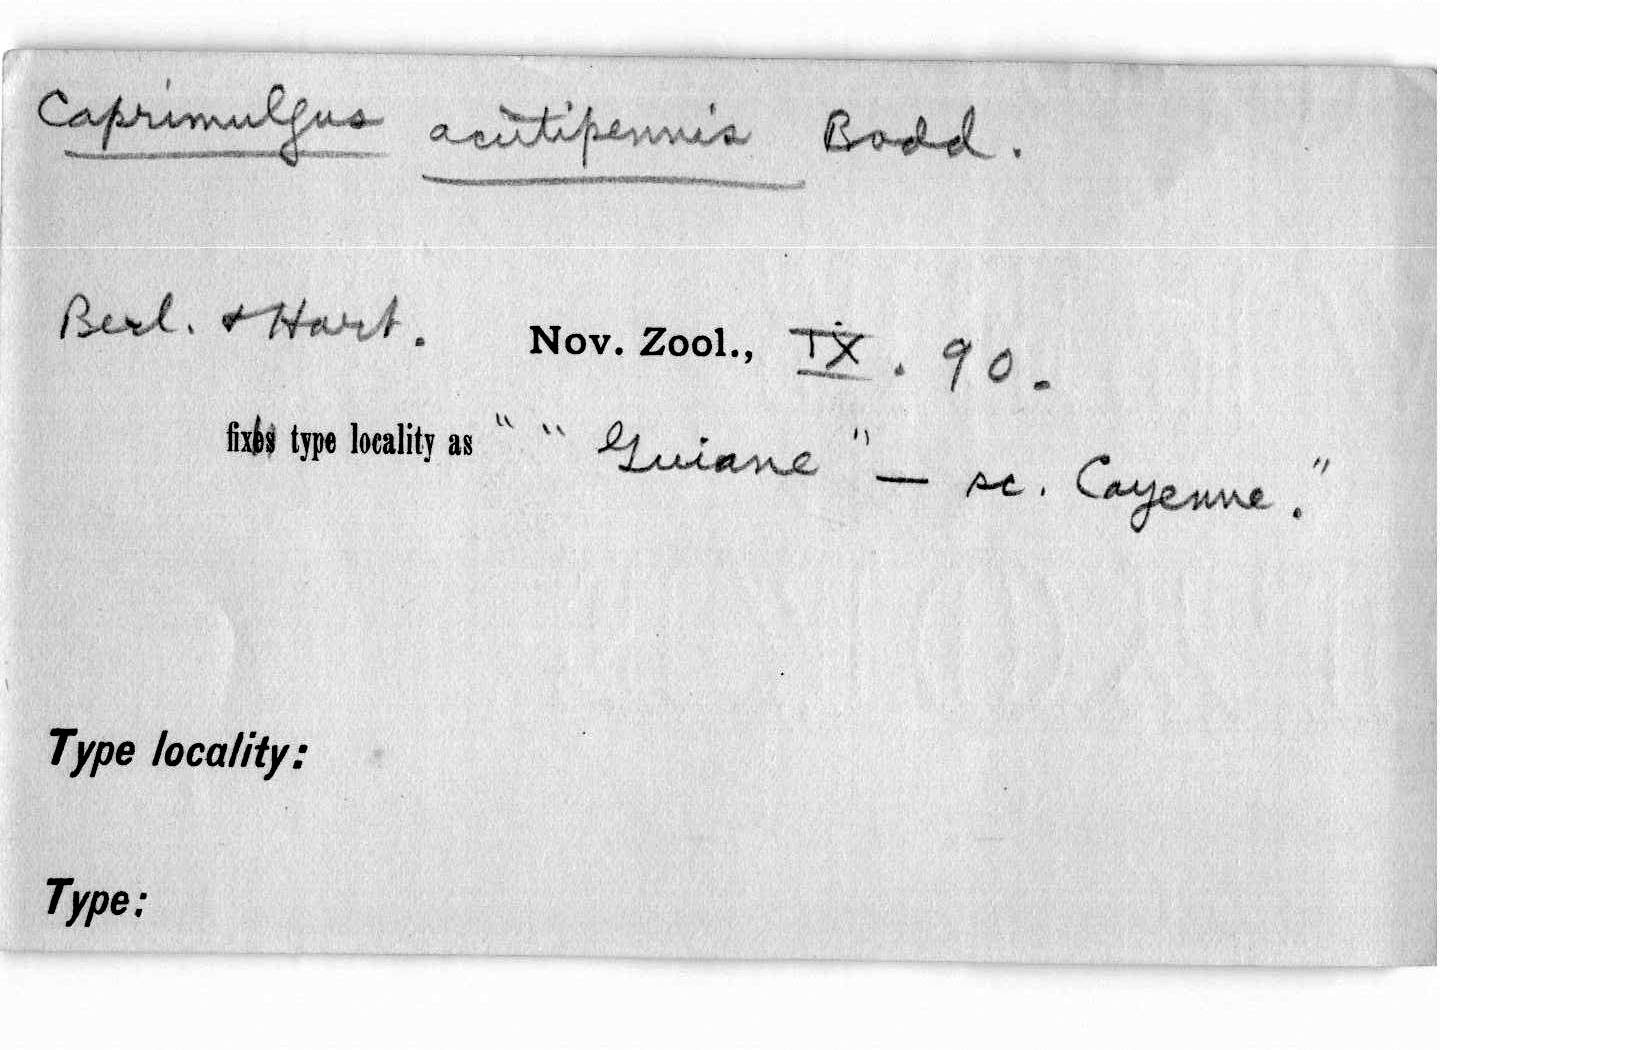 Caprimulgus acutipennis Bodd.
Berl. & Hart. Nov. Zool., IX. 90.
fix type locality as " " Guiane " — sc. Cayenne."
Type locality:
Type: